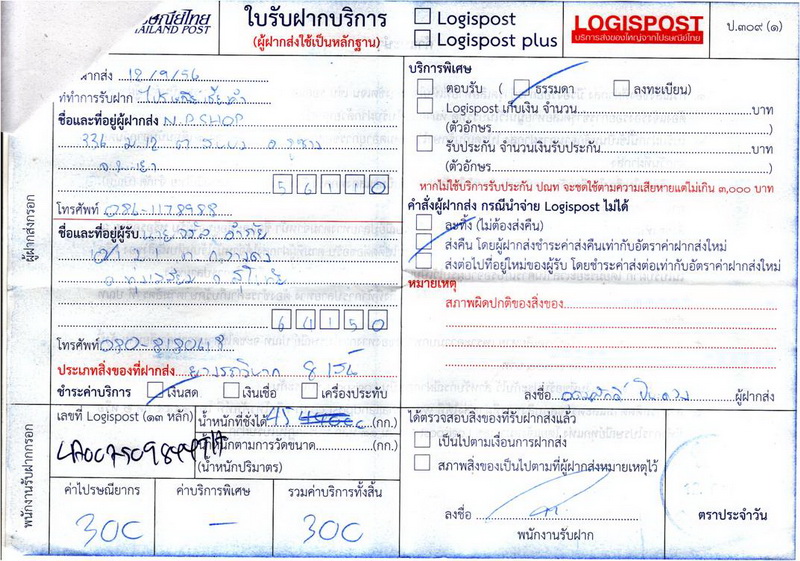 ไปรษณีย์ไทย
THAILAND POST
ใบรับฝากบริการ
(ผู้ฝากส่งใช้เป็นหลักฐาน)
Logispost
Logispost plus
LOGISPOST
บริการส่งของใหญ่จากไปรษณีย์ไทย
ป.๓๐๙ (๑)
ผู้ฝากส่งกรอก
ฝากส่ง 12/9/56
ที่ทำการรับฝาก
ชื่อและที่อยู่ผู้ฝากส่ง N.P.SHOP
336 ม.12 ต.
56110
โทรศัพท์ 086-1178988
ชื่อและที่อยู่ผู้รับ
64150
โทรศัพท์ 080-8180618
ประเภทสิ่งของที่ฝากส่ง 8 เส้น
ชำระค่าบริการ เงินสด เงินเชื่อ เครื่องประทับ
บริการพิเศษ
ตอบรับ ( ธรรมดา ลงทะเบียน)
Logispost เก็บเงิน จำนวน บาท
(ตัวอักษร )
รับประกัน จำนวนเงินรับประกัน บาท
(ตัวอักษร )
หากไม่ใช้บริการรับประกัน ปณท จะชดใช้ตามความเสียหายแต่ไม่เกิน ๓,๐๐๐ บาท
คำสั่งผู้ฝากส่ง กรณีนำจ่าย Logispost ไม่ได้
ละทิ้ง (ไม่ต้องส่งคืน)
ส่งคืน โดยผู้ฝากส่งชำระค่าส่งคืนเท่ากับอัตราค่าฝากส่งใหม่
ส่งต่อไปที่อยู่ใหม่ของผู้รับ โดยชำระค่าส่งต่อเท่ากับอัตราค่าฝากส่งใหม่
หมายเหตุ
สภาพผิดปกติของสิ่งของ
ลงชื่อ ผู้ฝากส่ง
พนักงานรับฝากกรอก
เลขที่ Logispost (๑๓ หลัก)
น้ำหนักที่ชั่งได้ 45 (กก.)
น้ำหนักตามการวัดขนาด (กก.)
(น้ำหนักปริมาตร)
ค่าไปรษณียากร ค่าบริการพิเศษ รวมค่าบริการทั้งสิ้น
300 – 300
ได้ตรวจสอบสิ่งของที่รับฝากส่งแล้ว
เป็นไปตามเงื่อนการฝากส่ง
สภาพสิ่งของเป็นไปตามที่ผู้ฝากส่งหมายเหตุไว้
ลงชื่อ
พนักงานรับฝาก
ตราประจำวัน